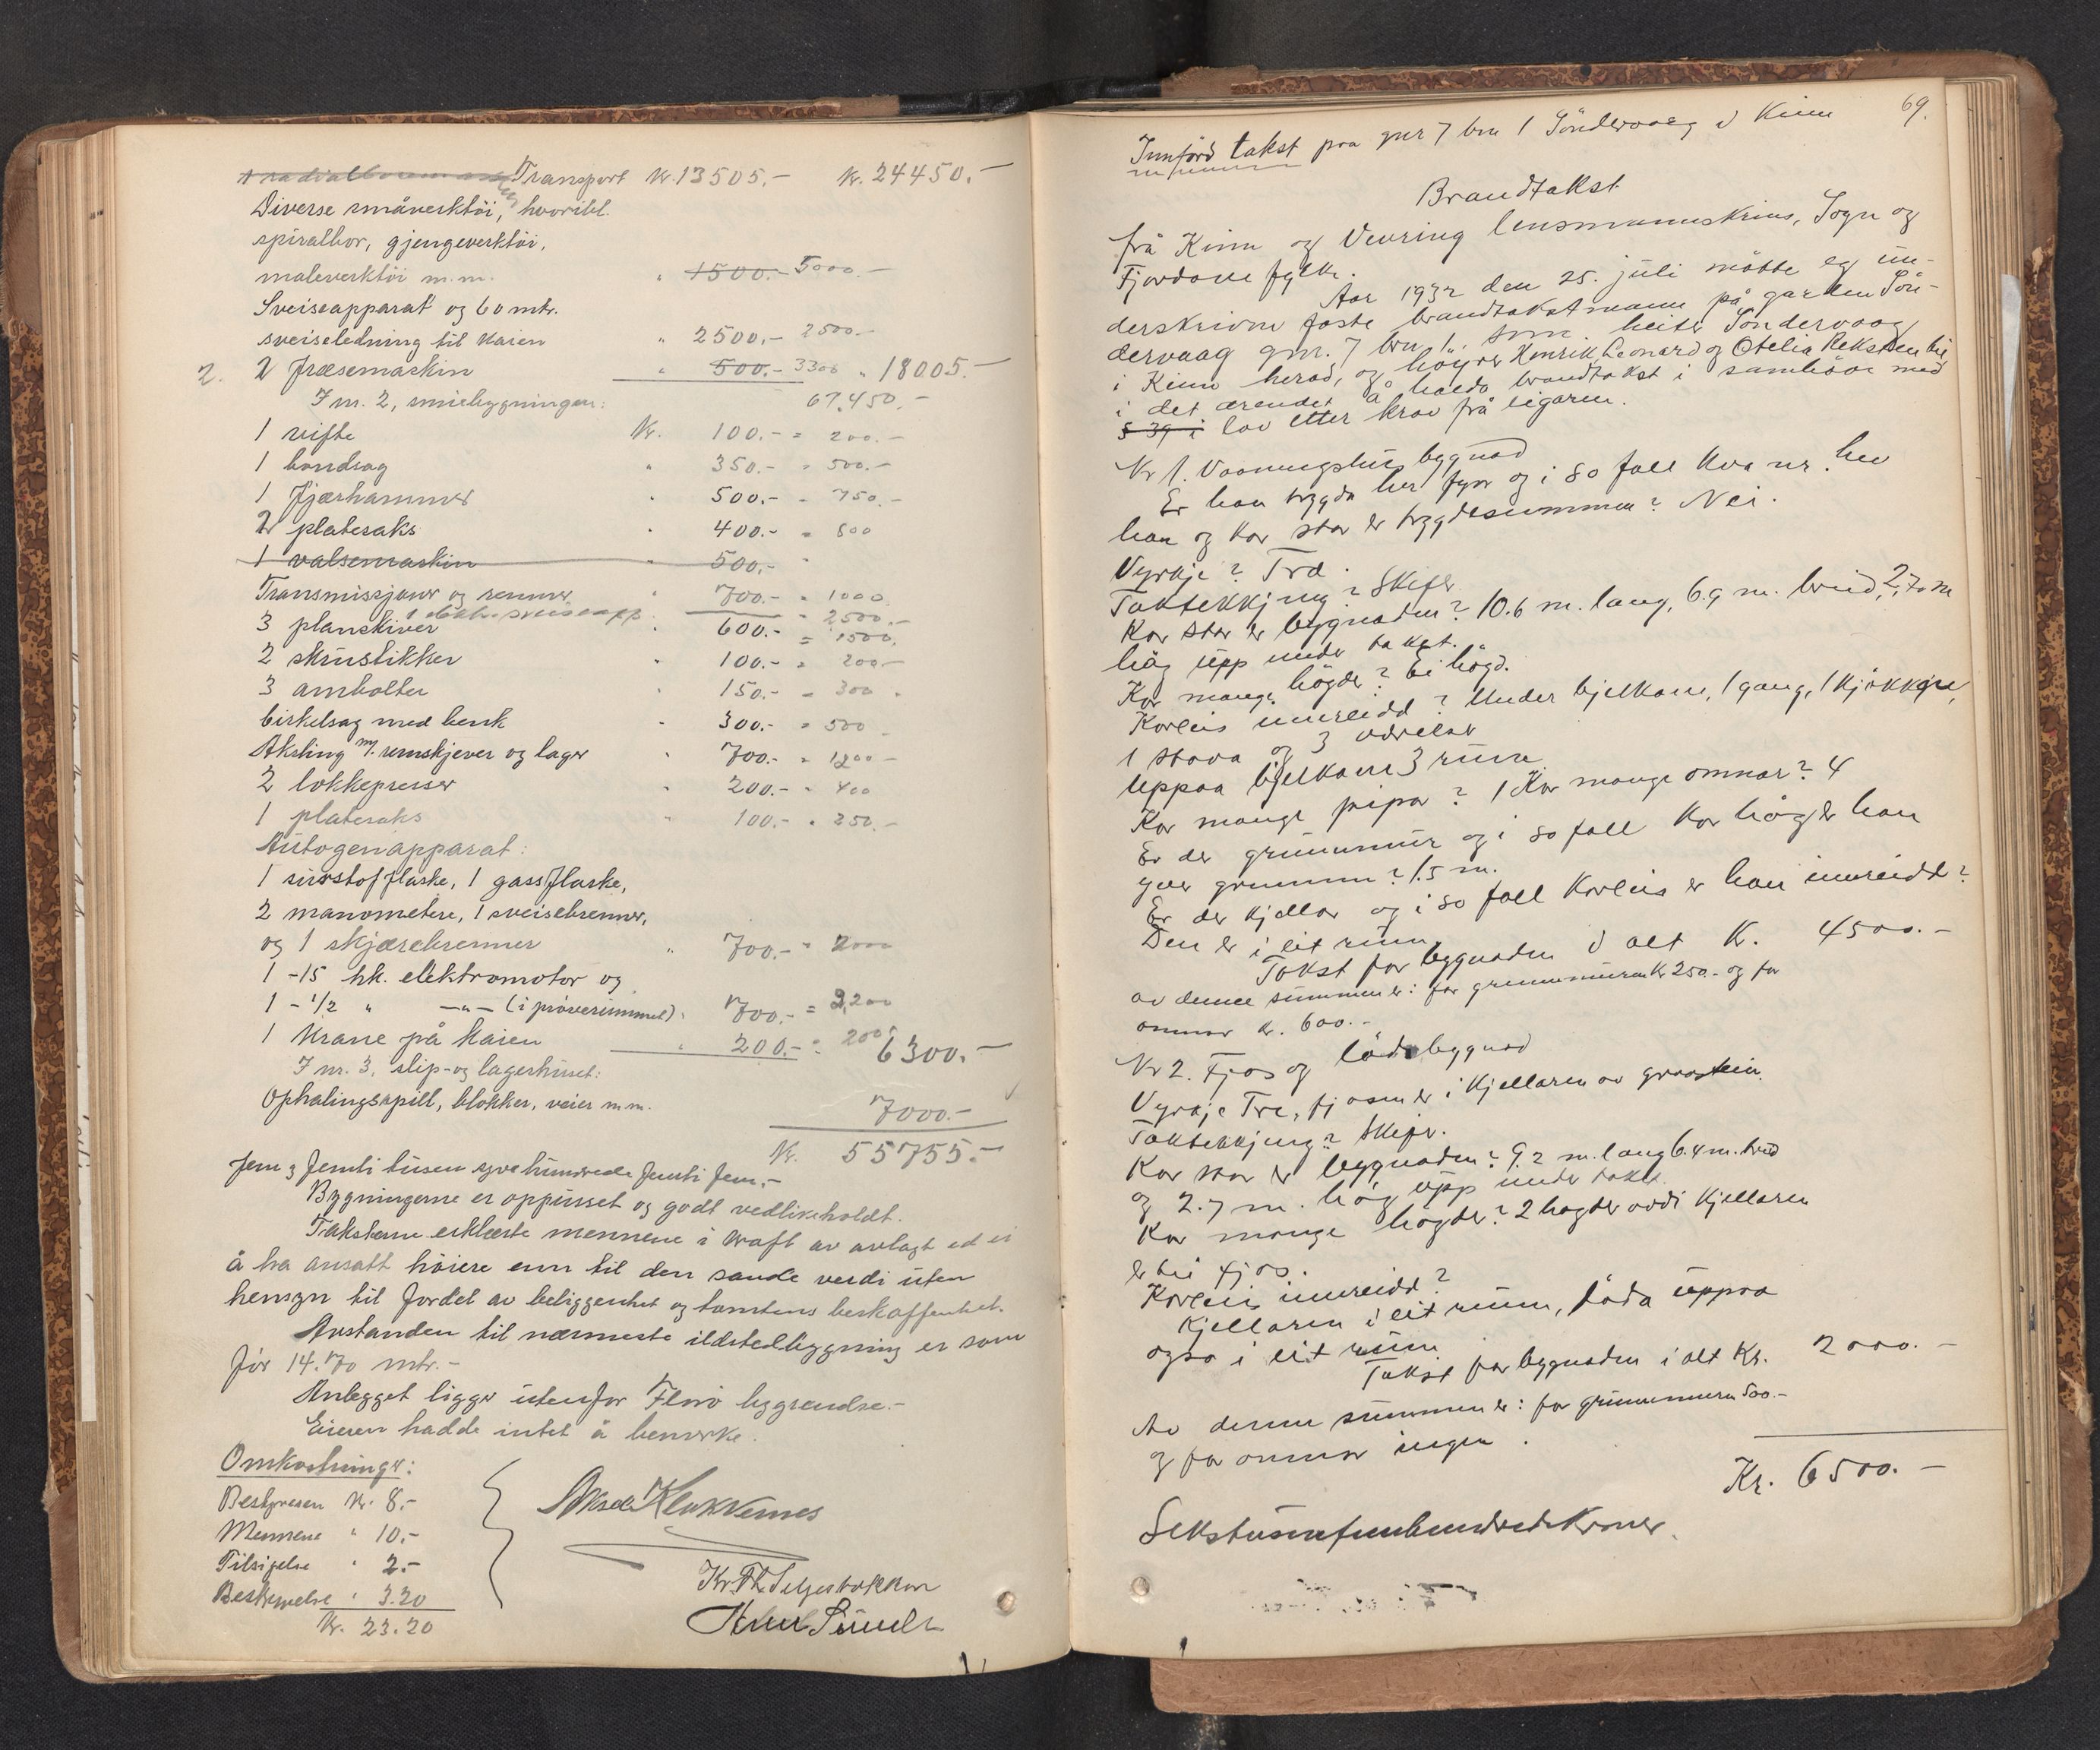 Transport Kr. 13505.- Kr. 24450.-
Diverse småverktöi, hvoribl.
spiralbor, gjengeverktöi,
maleverktöi m.m. " 1500.- 5000.-
Sveiseapparat og 60 mtr.
sveiseledning til kaien " 2500.- 2500.-
2. 2 fræsemaskin " 500.- 3300 " 18005.-
I nr. 2, smiebygningen: 67,450.-
1 vifte Kr. 100.- = 200.-
1 bondsag " 350.- = 500.-
1 fjærhammer " 500.- = 750.-
2 platesaks " 400.- = 800
1 valsemaskin " 500.-
Transmissjoner og remmer " 700.- = 1000
1 elektr. sveiseapp. = 2500.-
3 planskiver " 600.- = 1500.
2 skrustikker " 100.- = 200.-
3 ambolter " 150.- = 300.
Cirkelsag med benk " 300.- = 500
Aksling m/. remskjever og lager " 700.- = 1200-
2 lokkepresser " 200.- = 400
1 platesaks " 100.- = 250.-
Autogenapparat:
1 surstofflaske, 1 gassflaske,
2 manometere, 1 sveisebrenner,
og 1 skjærebrenner " 700.- = 2000
1 -15 hk. elektromotor og
1 - 1/2 " -"- (i pröverummet) 700.- = 2,200
1 Krane på kaien " 200.- = 200 6300.-
I nr. 3, slip- og lagerhuset:
Ophalingsspill, blokker, veier m.m. 7000.-
Kr. 55755.-
Fem og femti tusen syvehundrede femti fem.-
Bygningerne er oppusset og godt vedlikeholdt.
Taksterne erklærte mennene i kraft av avlagt ed ei
å ha ansatt höiere enn til den sande verdi uten
hensyn til fordel av beliggenhet og tomtens beskaffenhet.
Avstanden til nærmeste ildstedbygning er som
för 14.70 mtr.-
Anlegget ligger utenfor Florö bygrendse.-
Eieren hadde intet å bemerke.
Omkostninger:
Bestyreren Kr. 8.-
Mennene " 10.-
Tilsigelse " 2.-
Beskrivelse " 3.20
Kr. 23.20
Kr. Th. Seljestokken
69.
Innförd takst paa gnr 7 bnr 1 Söndervaag i Kinn
Brandtakst
frå Kinn og Vevring lensmannskrins, Sogn og
Fjordane fylke.
Aar 1932 den 25. juli mötte eg un-
derskrivne faste brandtakstmann på garden Sön-
dervaag gnr. 7 bnr 1. som heiter Söndervaag
i Kinn herad, og höyrer Henrik, Leonard og Otelia Rekstten til
i det ærendet å halda brandtakst i samhöve med
§ 39 i lov etter krav frå eigaren.
Nr 1. Vaaningshus bygnad
Er han trygda her fyrr og i so fall kva nr. hev
han og kor stor er trygdesummen? Nei.
Vyrkje? Tre.
Taktekkjing? Skifer
Kor stor er bygnaden? 10.6 m. lang, 6.9 m. breid, 2,70 m
høg upp under taket.
Kor mange högder? Ei högd.
Korleis innreidd? Under bjelkane, 1 gang, 1 kjökken,
1 stova og 3 værelser
Uppaa bjelkane 3 rum
Kor mange pipor? 1 Kor mange omnar? 4
Er der grunnmur og i so fall kor høg er han
yver grunnen? 1.5 m.
Er der kjellar og i so fall korleis er han innreidd?
Den er i eit rum.
Takst for bygnaden i alt Kr. 4500.-
av denne summen er: for grunnmuren Kr 250.- og for
omnar Kr. 600.-
Nr 2. Fjos og lödebygnad
Vyrkje Tre, fjosen er i kjellaren av graastein.
Taktekkjing? Skifer.
Kor stor er bygnaden? 9.2 m. lang 6.4 m. breid
og 2.7 m. høg upp under taket
Kor mange högder? 2 hogder avdi kjellaren
er til fjos.
Korleis innreidd?
Kjellaren i eit rum, löda uppaa
ogso i eit rum
Takst for bygnaden i alt Kr. 2000.-
Av denne summen er: for grunnmuren 500.-
og for omnar ingen.
Kr. 6500.-
Sekstusenfemhundredekroner.